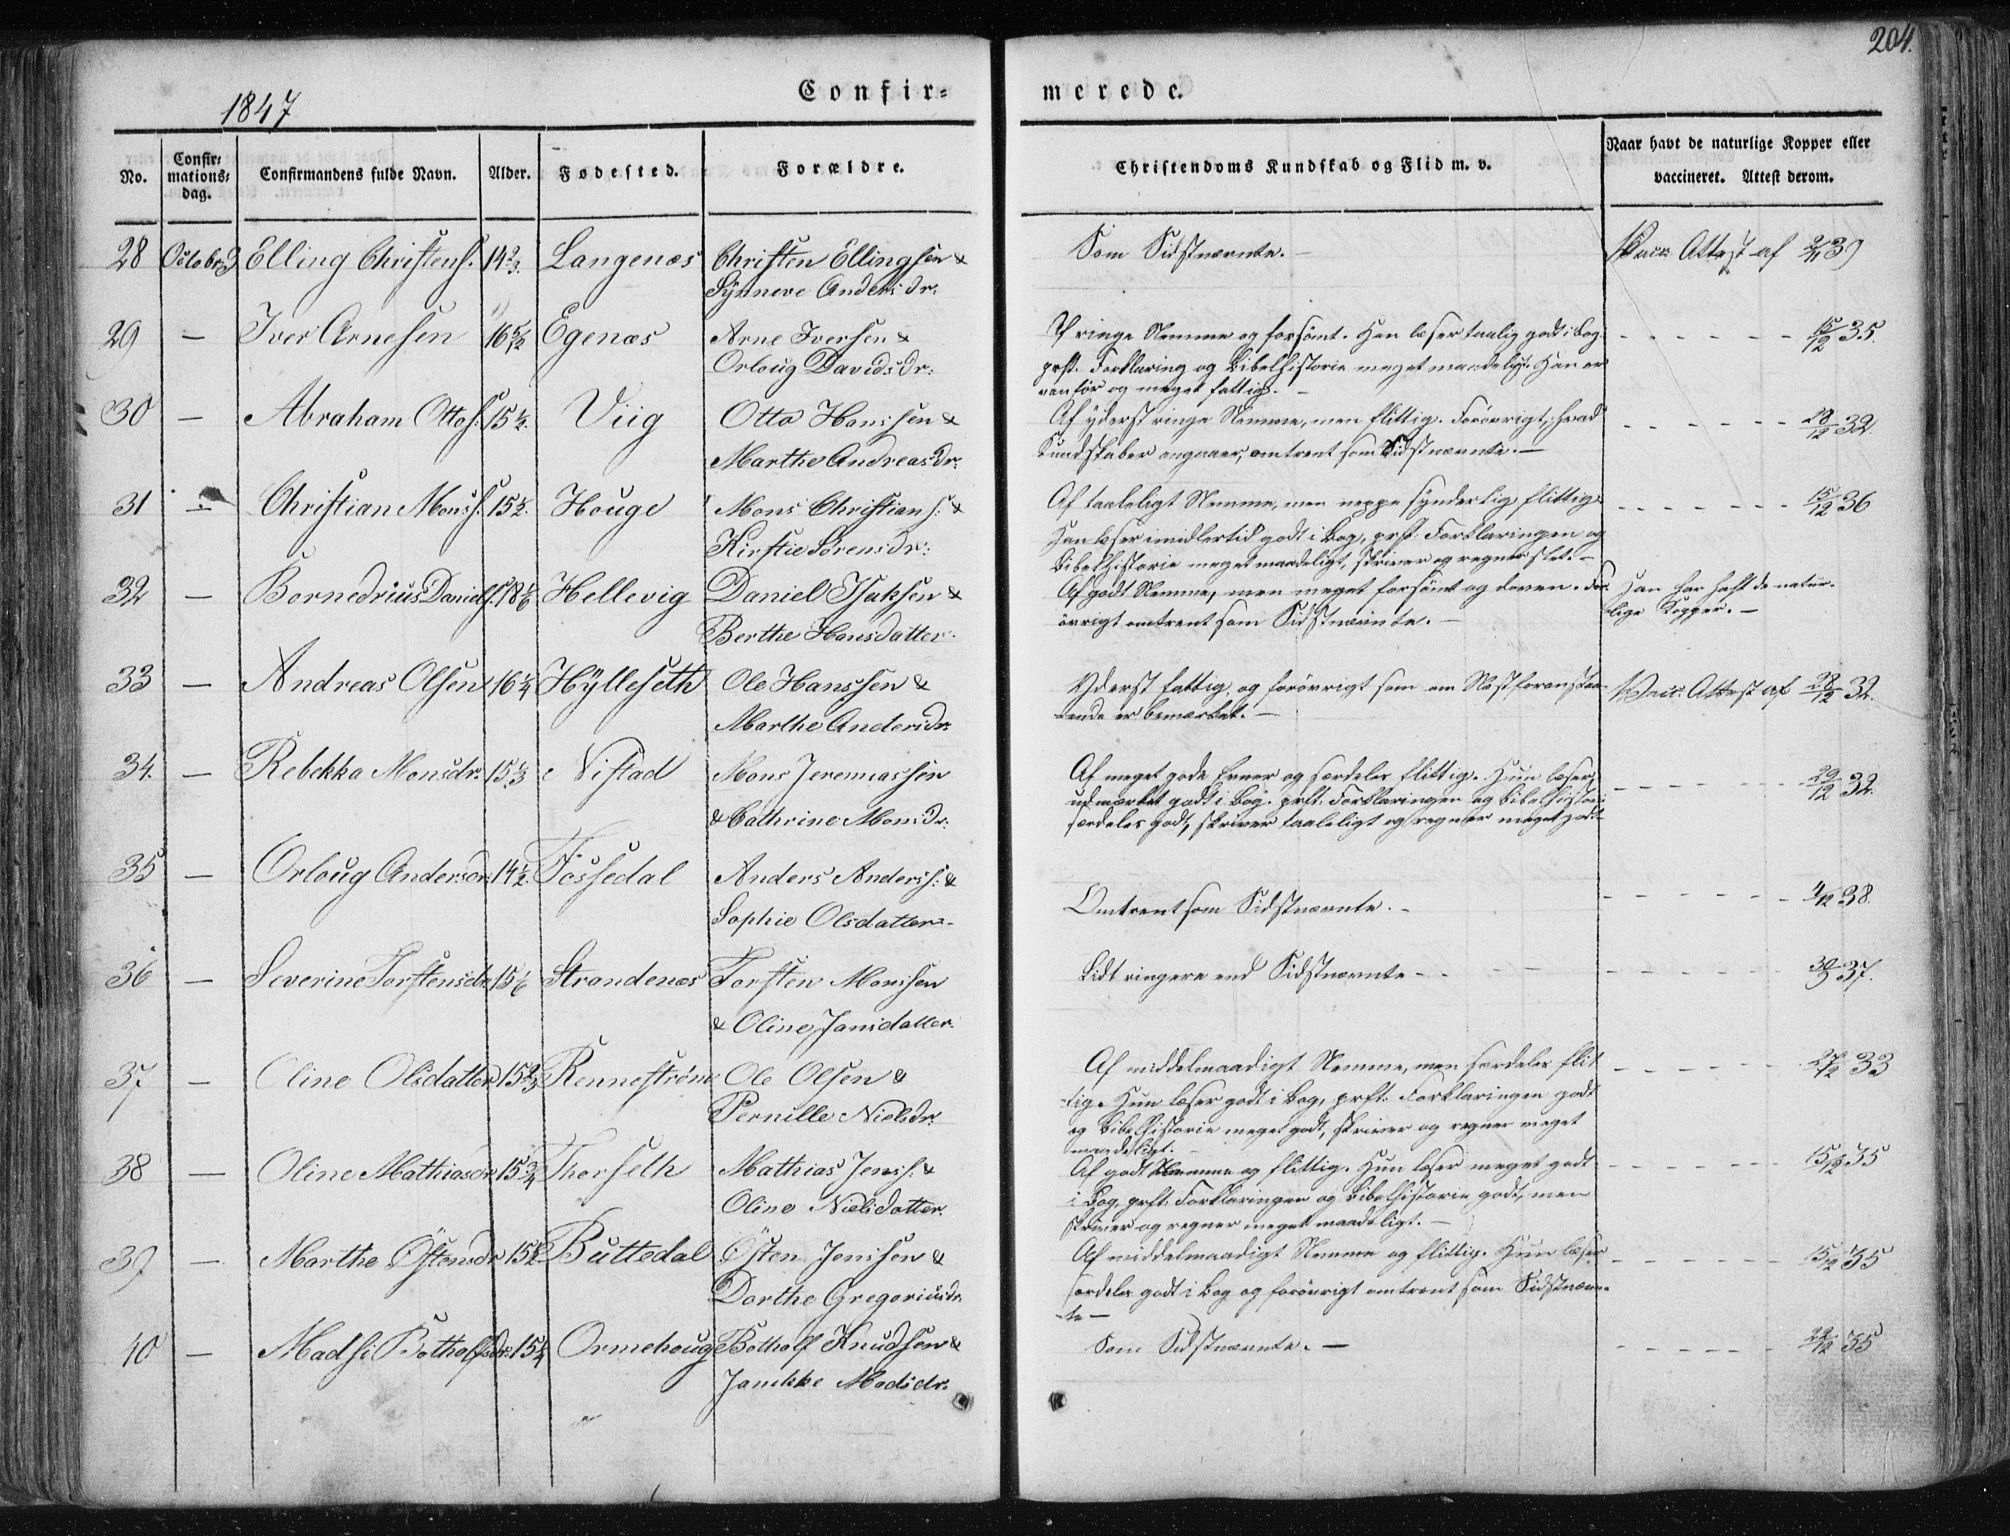 204.
1847
Confir=
merede.
No.
Confir=
mations=
dag.
Confirmandens fulde Navn.
Alder.
Fødested.
Forældre.
Christendoms Kundskab og Flid m. v.
Naar havt de naturlige Kopper eller
vaccineret. Attest derom.
28 October Elling Christens. 14 2/3. Langenæs Christen Ellingsen &
Synneve Anders dr:
Som Sidstnævnte. —
Vacc. Attest af
29 — Iver Arnesen 16 5/12 Egenæs Arne Iversen &
Orloug Davids dr:
Af ringe Nemme og forsömt. Han læser taalig godt i Bog
prst. Forklaring og Bibelhistorie meget maadeligt. Han er
vanför og meget fattig. —
15/12 35.
30 — Abraham Ottos. 15 1/2. Viig Otto Hanssen &
Marthe Andreasdr:
Af yderst ringe Nemme, men flittig. Forövrigt, hvad
Kundskaber angaaer, omtrent som Sidstnævnte. —
28/12 32.
31 — Christian Monss. 15 1/2. Houge Mons Christians. &
Kirstie Sörensdr:
Af taaleligt Nemme, men neppe synderlig flittig.
Han læser imidlertid godt i Bog, prst. Forklaringen og
Bibelhistorie meget maadeligt, skriver og regner slet. —
15/12 36
32 — Bornedrius Daniels. 18 1/6 Hellevig Daniel Isaksen &
Berthe Hansdatter.
Af godt Nemme, men meget forsömt og doven. For-
övrigt omtrent som Sidstnævnte. —
Han har haft de natur-
lige Kopper. —
33 — Andreas Olsen 16 1/4 Hylleseth Ole Hanssen &
Marthe Andersdr.
Yderst fattig, og forövrigt som om Næstforanstaa-
ende er bemærket. —
Vacc. Attest af 28/12 32.
34. — Rebekka Monsdr. 15 1/3 Nistad Mons Jeremiassen
& Cathrine Mons dr.
Af meget gode Evner og særdeles flittig. Hun læser
udmærket godt i Bog. prst. Forklaringen og Bibelhistorie
særdeles godt, skriver taaleligt og regner meget godt
29/12 32.
35 — Orloug Andersdr. 14 1/2. Fossedal Anders Anderss. &
Sophie Olsdatter. —
Omtrent som Sidstnævnte. —
4/12 38.
36 — Severine Torstensdr. 15 1/6 Strandenæs Torsten Monssen
& Oline Jansdatter.
Lidt ringere end Sidstnævnte —
30/9 37.
37 — Oline Olsdatter 15 2/3 Renneströme Ole Olsen &
Pernille Nielsdr.
Af middelmaadigt Nemme, men særdeles flit
tig. Hun læser godt i Bog, prst. Forklaringen godt
og Bibelhistorie meget godt, skriver og regner meget
maadeligt. —
27/12 33
38 — Oline Mathiasdr. 15 3/4 Thorseth Mathias Jenss. &
Oline Nielsdatter.
Af godt Nemme og flittig. Hun læser meget godt
i Bog, prst. Forklaringen og Bibelhistorie godt, men
skriver og regner meget maadeligt. —
15/12 35
39 — Marthe Östensdr 15 1/2 Buttedal Östen Jenssen &
Dorthe Gregoriusdr.
Af middelmaadigt Nemme og flittig. Hun læser
særdeles godt i Bog og forövrigt omtrent som Sidstnævn-
te —
15/12 35
40 — Madsi Botholfsdr. 15 1/4 Ormehoug Botholf Knudsen &
Janikke Madsdr.
Som Sidstnævnte. —
22/12 35